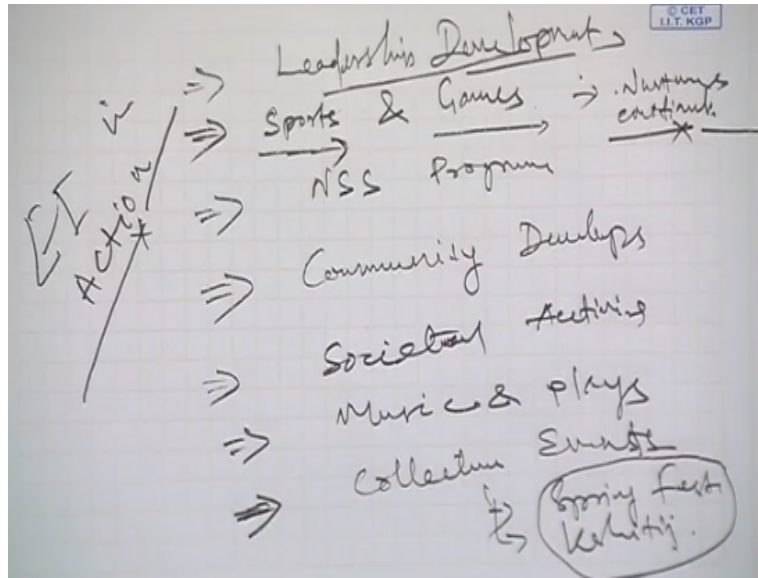 © CET
I.I.T. KGP
EI in
Action
⇒ Leadership Development
⇒ Sports & Games → Nurtures
continues
⇒ NSS Programme
⇒ Community Develops
⇒ Societal Activities
⇒ Music & plays
⇒ Collective Events
Spring fest
Kshitij.